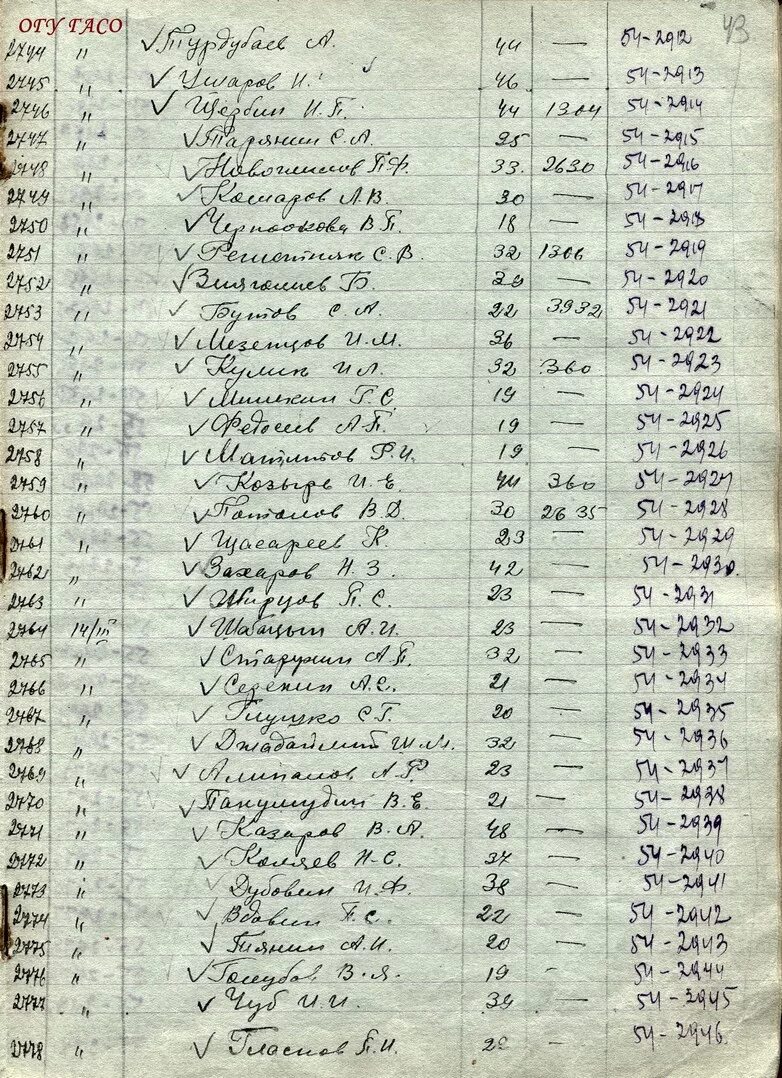 ОГУ ГАСО
43
2744 " ✓ Турдубаев А. 44 — 54-2912
2745 " ✓ Умаров И. 46 — 54-2913
2746 " ✓ Щербин И.П. 44 1304 54-2914
2747 " ✓ Тарянин С.А. 25 — 54-2915
2748 " ✓ П.Ф. 33. 2630 54-2916
2749 " ✓ Комаров А.В. 30 — 54-2917
2750 " ✓ Черноокова В.П. 18 — 54-2918
2751 " ✓ Решетняк С.В. 32 1306 54-2919
2752 " ✓ Б. — 54-2920
2753 " ✓ Бутов С.А. 22 3932 54-2921
2754 " ✓ Мезенцов И.М. 36 — 54-2922
2755 " ✓ Кулик И.Л. 32 360 54-2923
2756 " ✓ Мишкин Г.С. 19 — 54-2924
2757 " ✓ Федосеев А.П. 19 — 54-2925
2758 " ✓ 19 — 54-2926
2759 " ✓ Козырь И.Е. 44 360 54-2927
2760 " ✓ Потапов В.Д. 30 2635 54-2928
2761 " ✓ К. 23 — 54-2929
2762 " ✓ Захаров Н.З. 42 — 54-2930.
2763 " ✓ П.С. 23 — 54-2931
2764 14/III ✓ А.И. 23 — 54-2932
2765 " ✓ Старухин А.П. 32 — 54-2933
2766 " ✓ Серекин А.С. 21 — 54-2934
2767 " ✓ Глушко С.Г. 20 — 54-2935
2768 " ✓ 32 — 54-2936
2769 " ✓ А.Р. 23 — 54-2937
2770 " ✓ В.Е. 21 — 54-2938
2771 " ✓ Казаров В.А. 48 — 54-2939
2772 " ✓ Каляев Н.С. 37 — 54-2940
2773 " ✓ Дубовик И.Ф. 38 — 54-2941
2774 " ✓ Вдовин Г.С. 22 — 54-2942
2775 " ✓ Тянин А.И. 20 — 54-2943
2776 " ✓ Голубов В.Я. 19 — 54-2944
2777 " ✓ Чуб И.И. 39 — 54-2945
2778 " ✓ П.И. — 54-2946.